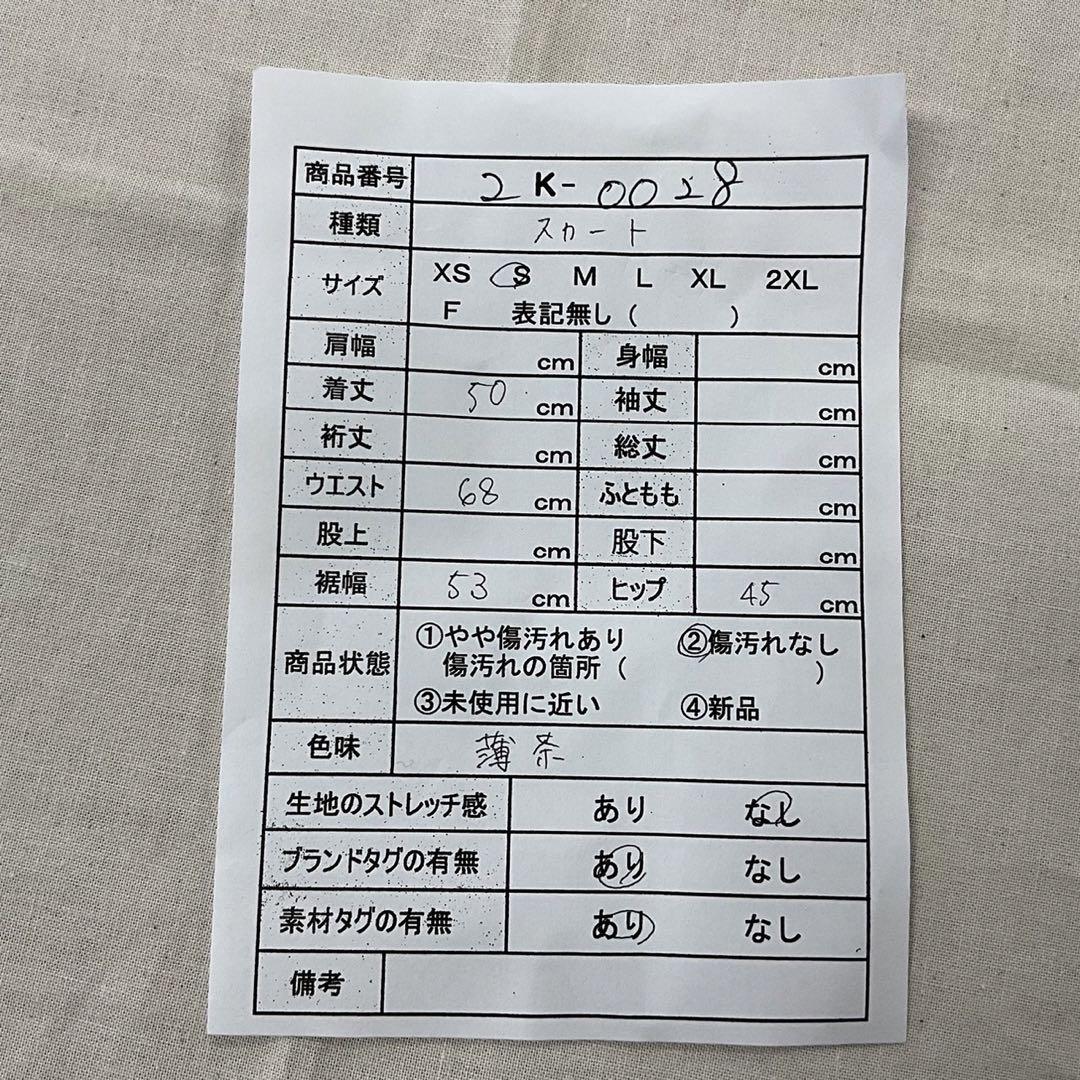 商品番号 2 K- 0028
種類 スカート
サイズ XS S M L XL 2XL
F 表記無し ( )
肩幅 cm 身幅 cm
着丈 50 cm 袖丈 cm
裄丈 cm 総丈 cm
ウエスト 68 cm ふともも cm
股上 cm 股下 cm
裾幅 53 cm ヒップ 45 cm
商品状態 ①やや傷汚れあり ②傷汚れなし
傷汚れの箇所 ( )
③未使用に近い ④新品
色味 薄茶
生地のストレッチ感 あり なし
ブランドタグの有無 あり なし
素材タグの有無 あり なし
備考